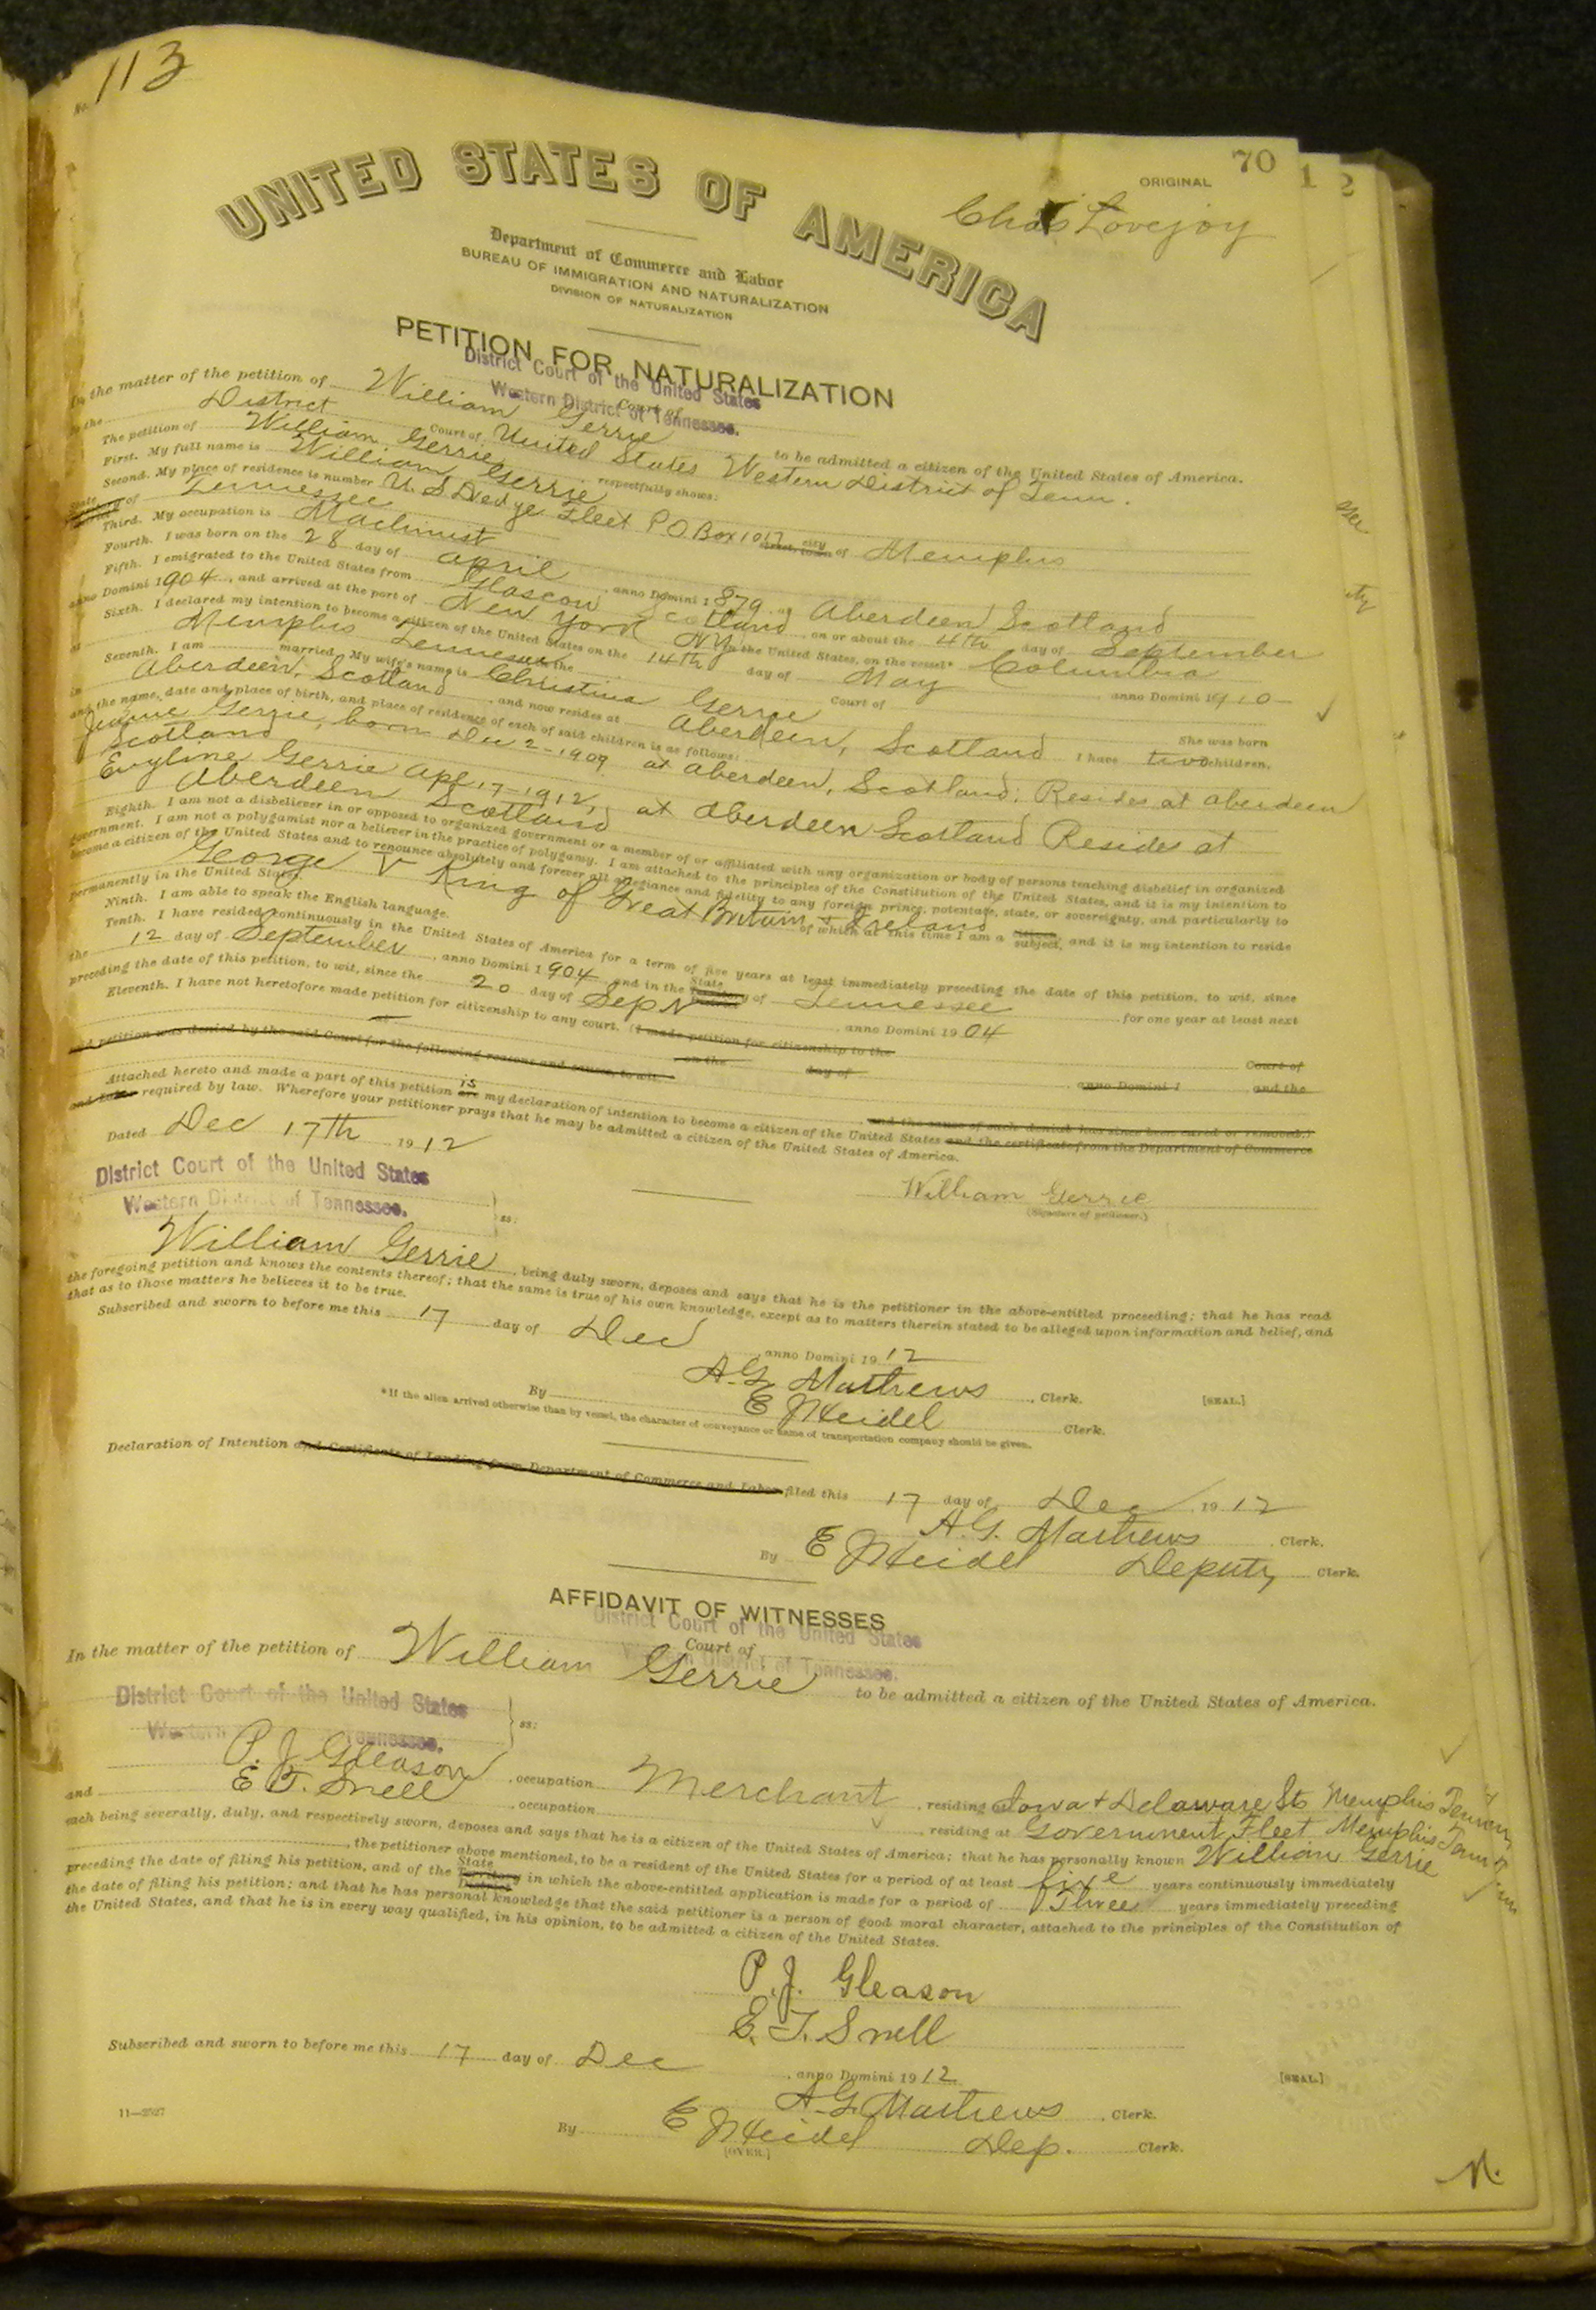 No. 113
ORIGINAL 70 1 2
Chas Lovejoy
UNITED STATES OF AMERICA
Department of Commerce and Labor
BUREAU OF IMMIGRATION AND NATURALIZATION
DIVISION OF NATURALIZATION
PETITION FOR NATURALIZATION
District Court of the United States
Western District of Tennessee.
Court of
In the matter of the petition of William Gerrie to be admitted a citizen of the United States of America.
To the District Court of United States Western District of Tenn.
The petition of William Gerrie respectfully shows:
First. My full name is William Gerrie
Second. My place of residence is number U.S Dredge Fleet P O Box 1017 street, town city of Memphis
State of Tennessee
Third. My occupation is Machinist
Fourth. I was born on the 28 day of April, anno Domini 1879, at Aberdeen Scotland
Fifth. I emigrated to the United States from Glascow Scotland, on or about the 4th day of September
anno Domini 1904, and arrived at the port of New York NY in the United States, on the vessel* Columbia
Sixth. I declared my intention to become a citizen of the United States on the 14th day of May anno Domini 1910
at Memphis Tennessee in the Court of
Seventh. I am married. My wife's name is Christina Gerrie She was born
in Aberdeen, Scotland and now resides at Aberdeen, Scotland I have two children,
and the name, date and place of birth, and place of residence of each of said children is as follows:
Gerrie, born Dec 2-1909 at Aberdeen, Scotland; Resides at Aberdeen
Scotland
Evyline Gerrie Apl 17-1912, at Aberdeen Scotland Resides at
Aberdeen Scotland
Eighth. I am not a disbeliever in or opposed to organized government or a member of or affiliated with any organization or body of persons teaching disbelief in organized
government. I am not a polygamist nor a believer in the practice of polygamy. I am attached to the principles of the Constitution of the United States, and it is my intention to
become a citizen of the United States and to renounce absolutely and forever all allegiance and fidelity to any foreign prince, potentate, state, or sovereignty, and particularly to
George V King of Great Britain & Ireland of which at this time I am a citizen subject, and it is my intention to reside
permanently in the United States.
Ninth. I am able to speak the English language.
Tenth. I have resided continuously in the United States of America for a term of five years at least immediately preceding the date of this petition, to wit, since
the 12 day of September, anno Domini 1904 and in the State Territory District of Tennessee for one year at least next
preceding the date of this petition, to wit, since the 20 day of Sept anno Domini 1904
Eleventh. I have not heretofore made petition for citizenship to any court. (I made petition for citizenship to the Court of
at on the day of anno Domini 1 and the
said petition was denied by the said Court for the following reasons and causes, to wit,
and the cause of such denial has since been cured or removed.)
Attached hereto and made a part of this petition are is my declaration of intention to become a citizen of the United States and the certificate from the Department of Commerce
and Labor required by law. Wherefore your petitioner prays that he may be admitted a citizen of the United States of America.
Dated Dec 17th 1912
William Gerrie
(Signature of petitioner.)
District Court of the United States
Western District of Tennessee. ss:
William Gerrie, being duly sworn, deposes and says that he is the petitioner in the above-entitled proceeding; that he has read
the foregoing petition and knows the contents thereof; that the same is true of his own knowledge, except as to matters therein stated to be alleged upon information and belief, and
that as to those matters he believes it to be true.
Subscribed and sworn to before me this 17 day of Dec, anno Domini 1912
A.G. Matthews, Clerk. [SEAL.]
By E Heidel Clerk.
*If the alien arrived otherwise than by vessel, the character of conveyance or name of transportation company should be given.
Declaration of Intention and Certificate of Landing from Department of Commerce and Labor filed this 17 day of Dec 1912
A.G. Matthews, Clerk.
By E Heidel Deputy Clerk.
AFFIDAVIT OF WITNESSES
District Court of the United States
Court of
Western District of Tennessee.
In the matter of the petition of William Gerrie to be admitted a citizen of the United States of America.
District Court of the United States
Western Tennessee. ss:
P. J. Gleason, occupation Merchant, residing at Iowa & Delaware Sts Memphis Tenn
and E T. Snell, occupation, residing at Government Fleet Memphis Tenn
each being severally, duly, and respectively sworn, deposes and says that he is a citizen of the United States of America; that he has personally known William Gerrie
, the petitioner above mentioned, to be a resident of the United States for a period of at least five years continuously immediately
preceding the date of filing his petition, and of the State Territory District in which the above-entitled application is made for a period of Three years immediately preceding
the date of filing his petition; and that he has personal knowledge that the said petitioner is a person of good moral character, attached to the principles of the Constitution of
the United States, and that he is in every way qualified, in his opinion, to be admitted a citizen of the United States.
P. J. Gleason
E. T. Snell
Subscribed and sworn to before me this 17 day of Dec, anno Domini 1912
[SEAL.]
A.G. Matthews, Clerk.
By E Heidel Dep. Clerk.
11—2527
[OVER.]
N.